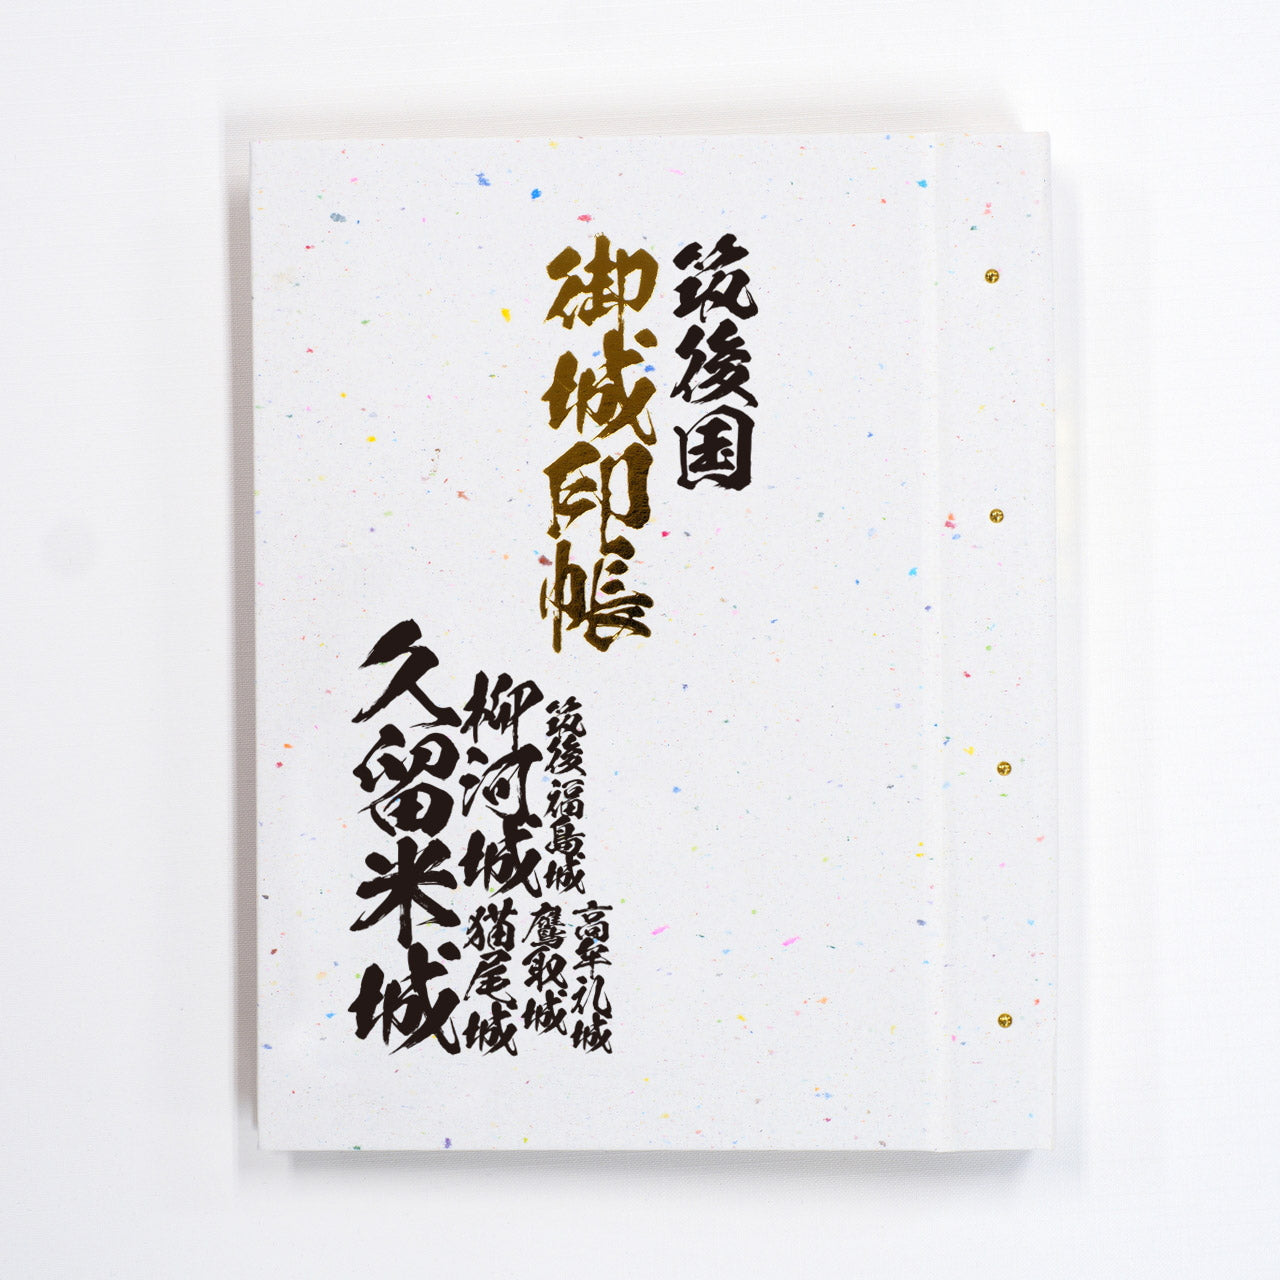 筑後国
御城印帳
高牟礼城
筑後福島城
鷹取城
柳河城
猫尾城
久留米城